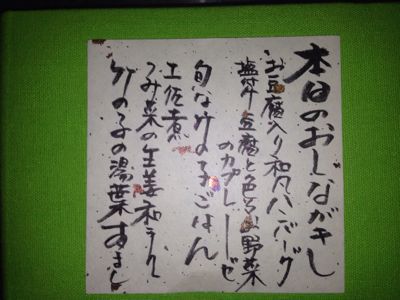 本日のおしながき
お豆腐入り和風ハンバーグ
塩付豆腐と色々お野菜
のカプレーゼ
旬なたけの子ごはん
土佐煮
つみ菜の生姜和え
竹の子の湯葉すまし